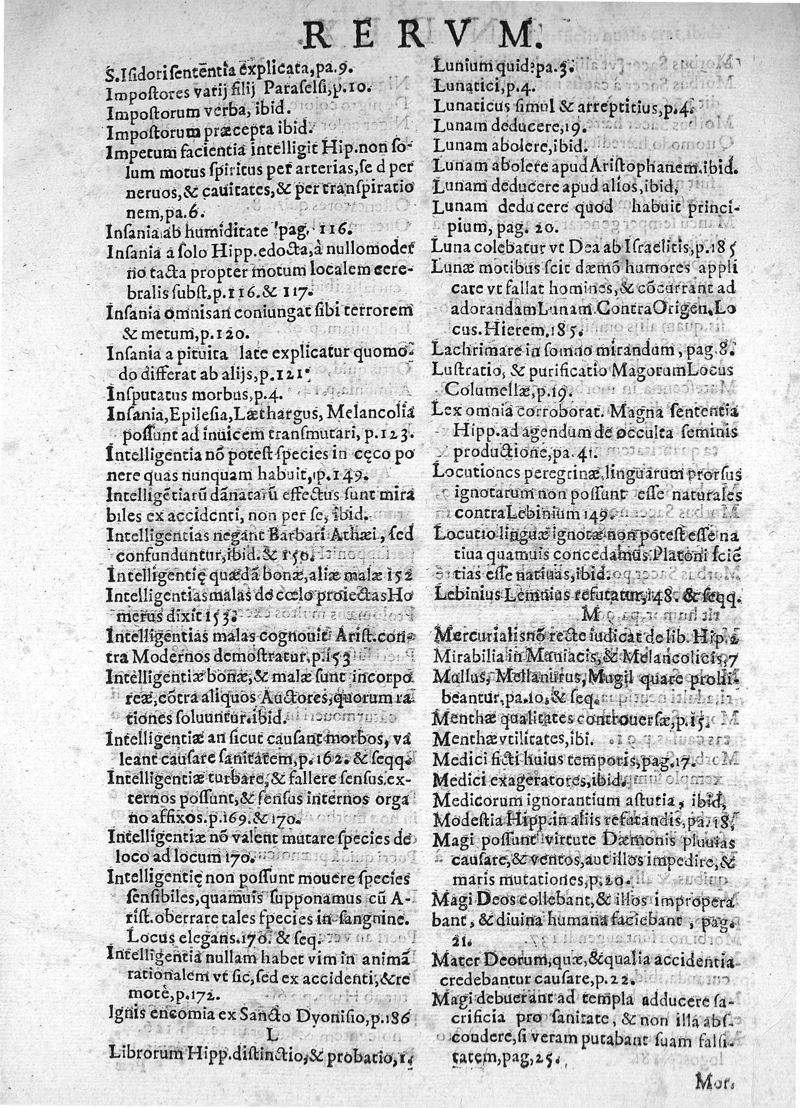 RERVM.
S. Isidori sentẽntia explicata, pa. 9.
Impostores varij filij Paraselsi, p. 10.
Impostorum verba, ibid.
Impostorum præcepta ibid.
Impetum facientia intelligit Hip. non so-
lum motus spiritus per arterias, se d per
neruos, & cauitates, & per transpiratio
nem, pa. 6.
Insania ab humiditate pag. 116.
Insania a solo Hipp. edocta, à nullo moder
no tacta propter motum localem cere-
bralis subst, p. 116. & 117.
Insania omnis an coniungat sibi terrorem
& metum, p. 120.
Insania a pituita late explicatur quomo-
do differat ab alijs, p. 121.
Insputatus morbus, p. 4.
Insania, Epilesia, Læthargus, Melancolia
possunt ad inuicem transmutari, p. 123.
Intelligentia nõ potest species in cęco po
nere quas nunquam habuit, p. 149.
Intelligẽtiarũ dãnatarũ effectus sunt mira
biles ex accidenti, non per se, ibid.
Intelligentias negant Barbari Athæi, sed
confunduntur, ibid. & 150.
Intelligentię quædã bonæ, aliæ malæ 152
Intelligentias malas de cœlo proiectas Ho
merus dixit 153.
Intelligentias malas cognouit Arist. con-
tra Modernos demõstratur, p. 153
Intelligentiæ bonæ, & malæ sunt incorpo
reæ, cõtra aliquos Auctores, quorum ra
tiones soluuntur. ibid.
Intelligentiæ an sicut causant morbos, va
leant causare sanitatem, p. 162. & seqq.
Intelligentiæ turbare, & fallere sensus, ex-
ternos possunt, & sensus internos orga
no affixos. p. 169. & 170.
Intelligentiæ nõ valent mutare species de
loco ad locum 170.
Intelligentię non possunt mouere species
sensibiles, quamuis supponamus cũ A-
rist. oberrare tales species in sangnine.
Locus elegans. 170. & seq.
Intelligentia nullam habet vim in animã
rationalem vt sic, sed ex accidenti, & re
motè, p. 172.
Ignis encomia ex Sancto Dyonisio, p. 186
L
Librorum Hipp. distinctio, & probatio, 1.
Lunium quid? pa. 3.
Lunatici, p. 4.
Lunaticus simul & arreptitius, p. 4.
Lunam deducere, 19.
Lunam abolere, ibid.
Lunam abolere apud Aristophanem. ibid.
Lunam deducere apud alios, ibid,
Lunam deducere quod habuit princi-
pium, pag. 20.
Luna colebatur vt Dea ab Israelitis, p. 185
Lunæ motibus scit dæmõ humores appli
care vt fallat homines, & cõcurrant ad
adorandam Lunam. Contra Origen. Lo
cus. Hierem, 185.
Lachrimare in somno mirandum, pag. 8.
Lustratio, & purificatio Magorum Locus
Columellæ, p. 19.
Lex omnia corroborat. Magna sententia
Hipp. ad agendum de occulta seminis
productione, pa. 41.
Locutiones peregrinæ, linguarum prorsus
ignotarum non possunt esse naturales
contra Lebinium 149.
Locutio linguæ ignotæ non potest esse na
tiua quamuis concedamus Platoni sciẽ
tias esse natiuas, ibid.
Lebinius Lemnius refutatur, 148. & seqq.
M
Mercurialis nõ recte iudicat de lib. Hip. 2
Mirabilia in Maniacis, & Melancolicis, 7
Mullus, Mellanurus, Mugil quare prohi
beantur, pa. 10. & seq.
Menthæ qualitates controuersæ, p. 15.
Menthæ vtilitates, ibi.
Medici ficti huius temporis, pag. 17.
Medici exageratores, ibid.
Medicorum ignorantium astutia, ibid,
Modestia Hipp. in aliis refutandis, pa. 18.
Magi possunt virtute Dæmonis pluuias
causare, & ventos, aut illos impedire, &
maris mutationes, p. 20.
Magi Deos collebant, & illos impropera
bant, & diuina humana faciebant, pag.
21.
Mater Deorum, quæ, & qualia accidentia
credebantur causare, p. 22.
Magi debuerant ad templa adducere sa-
crificia pro sanitate, & non illa abs-
condere, si veram putabant suam falsi-
tatem, pag, 25.
Mor.